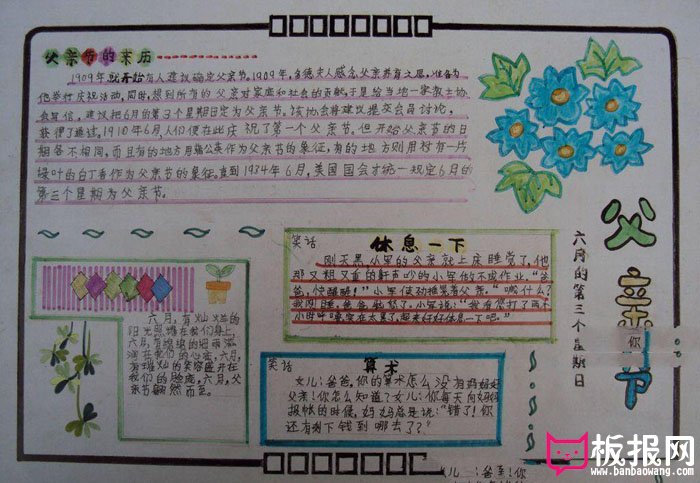 父亲节的来历
1909年就开始有人建议确定父亲节。1909年,多德夫人感念父亲养育之恩,准备为
他举行庆祝活动,同时,想到所有的父亲对家庭和社会的贡献,于是给当地一家教士协
会写信,建议把6月的第3个星期日定为父亲节。该协会将建议提交会员讨论,
获得了通过,1910年6月人们便在此庆祝了第一个父亲节。但开始父亲节的日
期各不相同,而且有的地方用蒲公英作为父亲节的象征,有的地方则用衬有一片
绿叶的白丁香作为父亲节的象征。直到1934年6月,美国国会才统一规定6月的
第三个星期为父亲节。
父亲节
六月的第三个星期日
笑话 休息一下
刚天黑小军的父亲就上床睡觉了,他
那又粗又重的鼾声吵的小军做不成作业。"爸
爸,快醒醒!"小军使劲推
小时呼噜
六月,有灿烂的
阳光照耀在我们身上,
六月,
润在我们的心底,六月,
我们的脸庞,六月,父
亲节翩然而至。
笑话 算术
女儿:爸爸,你的算术怎么没有妈妈好
父亲:你怎么知道?女儿:你每天向妈妈
报帐的时候,妈妈总是说:"错了!你
还有剩下钱到哪去了?"
你
女儿:爸爸!你
板报网
www.banbaowang.com